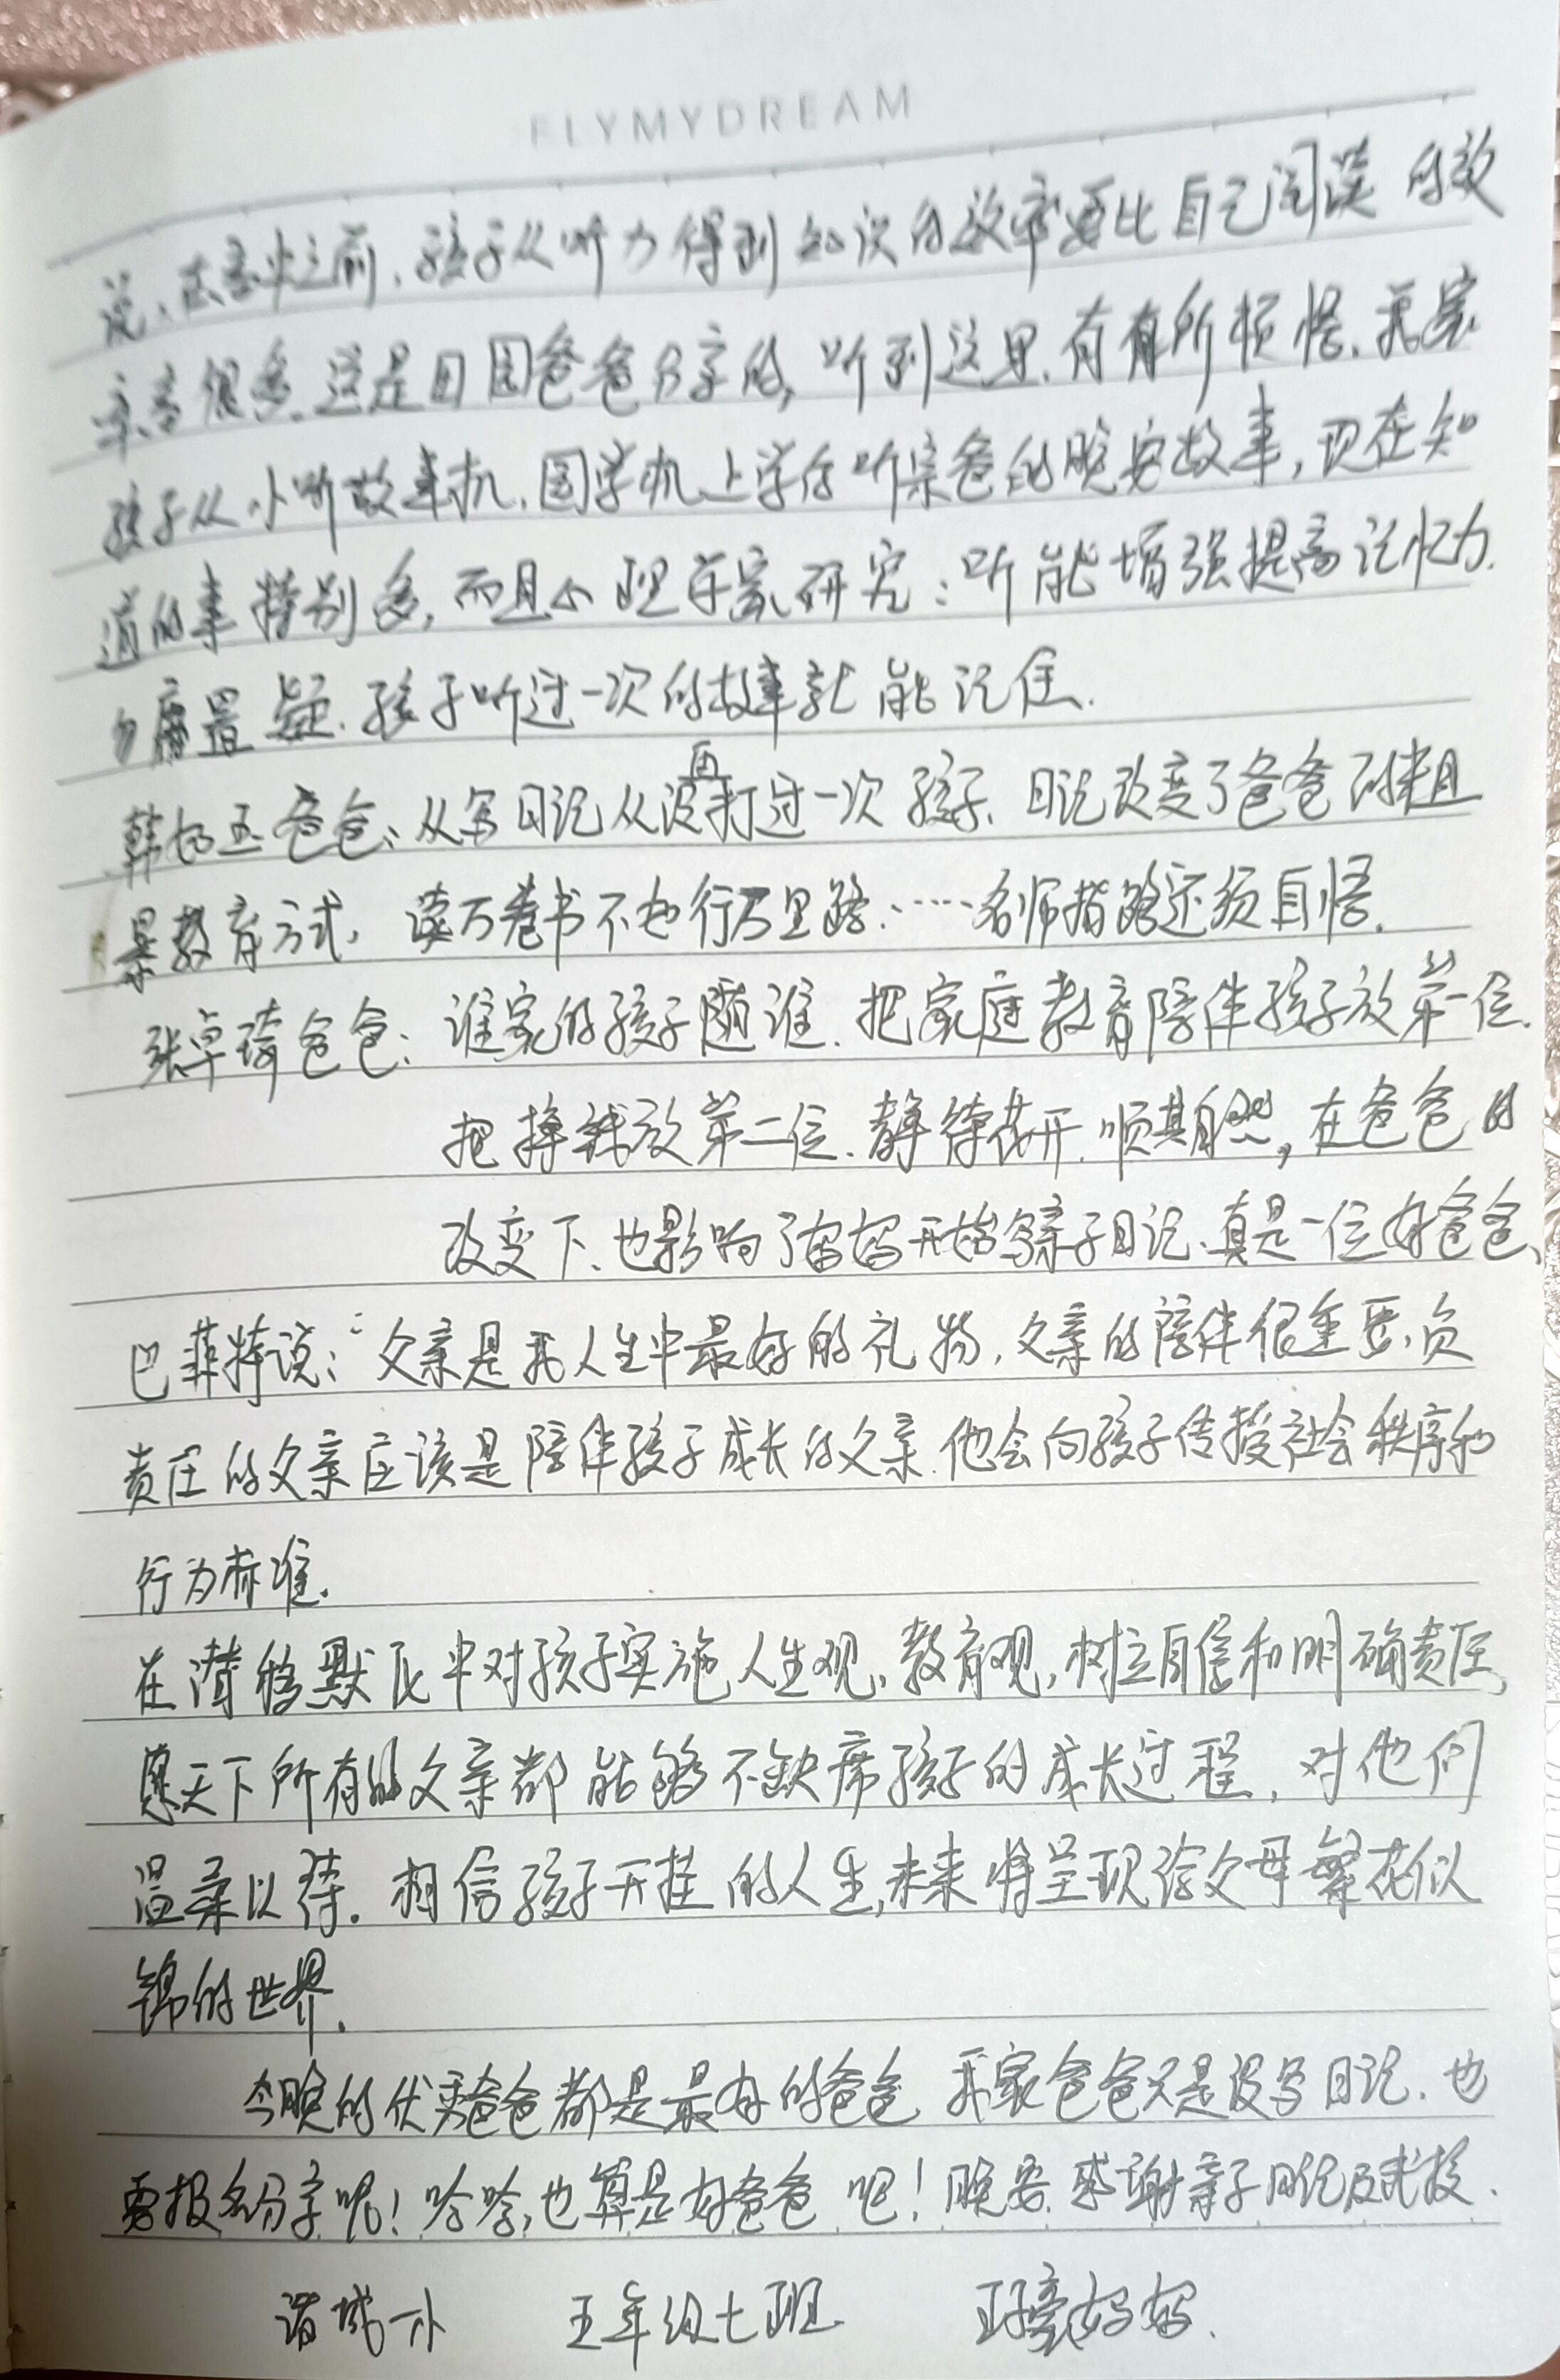 FLYMYDREAM
说、在高中之前、孩子从听力得到知识的效率要比自己阅读的效
率高很多、这是田园爸爸分享的，听到这里、有有所顿悟、我家
孩子从小听故事机、国学机上学后听亲爸的晚安故事，现在知
道的事特别多，而且心理学家研究：听能增强提高记忆力.
勿庸置疑、孩子听过一次的故事就能记住.
韩 玉爸爸：从写日记从没再打过一次孩子、日记改变了爸爸 粗
暴教育方式， 读万卷书不如行万里路、……名师指路还须自悟.
张卓琦爸爸：谁家的孩子随谁、把家庭教育陪伴孩子放第一位.
把挣钱放第二位、静待花开、顺其自然，在爸爸的
改变下、也影响了妈妈开始写亲子日记、真是一位好爸爸、
巴菲特说：父亲是我人生中最好的礼物，父亲的陪伴很重要，负
责任的父亲应该是陪伴孩子成长的父亲、他会向孩子传授社会秩序和
行为标准.
在潜移默化中对孩子实施人生观、教育观，树立自信和明确责任，
愿天下所有的父亲都能够不缺席孩子的成长过程，对他们
温柔以待. 相信孩子开挂的人生，未来将呈现给父母繁花似
锦的世界.
今晚的优秀爸爸都是最好的爸爸 我家爸爸只是没写日记、也
要报名分享呢！哈哈，也算是好爸爸吧！晚安. 感谢亲子日记及式校.
诸城一小 五年级七班 妈妈.